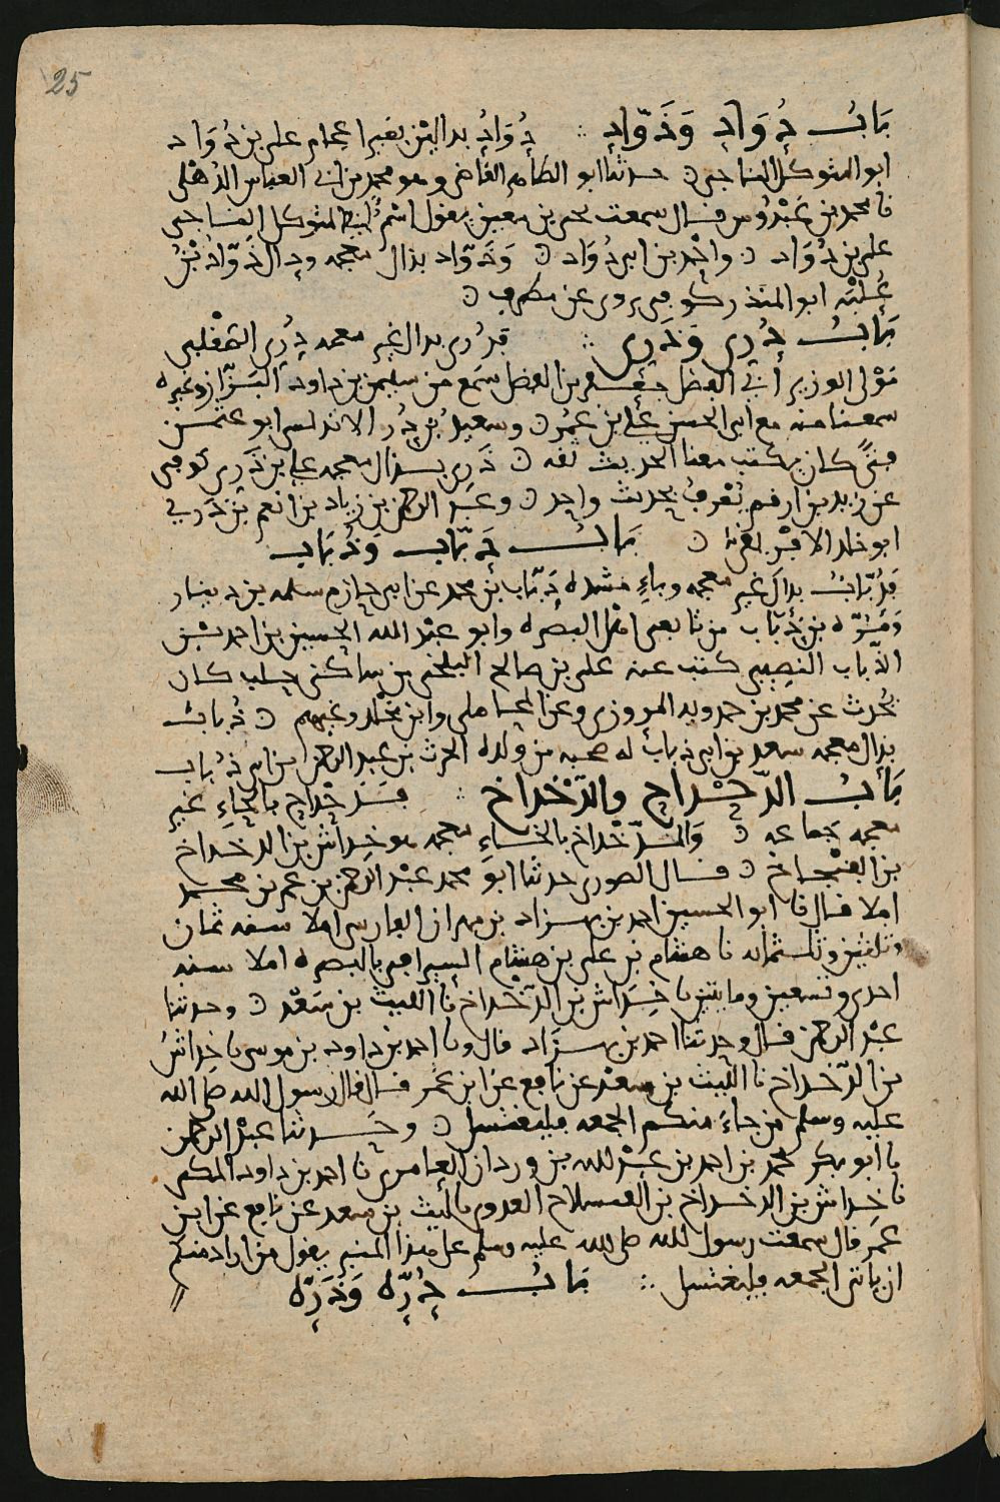 25
بَابُ دُوَاد وَذَوّاد ∴ دُوَادُ بدالين بغير اعجام علي بن دُوَاد
ابو المتوكل الناجي ○ حدثنا ابو الطاهر القاضي وهو محمد بن احمد العباس الذهلي
نا محمد بن عَبْدُوس قال سمعت يحيى بن معين يقول اسْمُ ابي المتوكل الناجي
علي بن دُوَاد ○ واحمد بن ابي دُوَاد ○ وَذَوّاد بذال معجمه ودال ذَوّادُ بْنُ
عُلْبَه ابو المنذر كوفي يروي عن مطرف ○
بَابُ دُري وَذَري ∴ فدُري بدال غير معجمه دُري الثعْلبي
مَوْلى الوزير أبي الفضل جعفر بن الفضل سمع من سليمن بن داود البَزّاز وغيره
سمعنا منه مع ابي الحسن علي بن عُمَر ○ وسعيد بن دُر الاندلسي ابو عثمن
فتًى كان يكتب معنا الحديث ثقه ○ ذَري بذال معجمه علي بن ذَري كوفي
عن زيد بن ارقم يُعْرفُ بحديث واحد ○ وعَبد الرحمن بن زياد بن انعم بن ذَري
ابو خلد الافريقي ○ بَابُ دَبّاب وَذُبَاب
فدَبّابُ بدال غير معجمه وباءٍ مشدده دَبّاب بْن محمد عن ابي حازم سلمه بن دينار
وَمُرّه بن دَبّاب من تابعي اهل البصره وابو عبْد الله الحسين بن احمد بن
الدّباب النصيبي كتب عنه علي بن صالح البلخي من ساكني حلب كان
يُحدث عن محمد بن حمدويه المروزي وعن المحاملي وابن مَخْلد وغيرهم ○ ذُبابُ
بذال معجمه سعد بن ابي ذباب له صحبه من ولده الحرث بن عبد الرحمن بن ابي ذُباب
بَابُ الدّحْدَاح والدّخْدَاخ ∴ فدَحْدَاح بالحاءِ غير
معجمه جماعه ○ وَالدّخْدَاخ بالخاءِ معجمه هو خِدَاش بن الدخداخ
بن ○ قال الصوري حدثنا ابو محمد عبْد الرحمن بن عمر بن محمد
املا قال نا ابو الحسين احمد بن بهزاد بن مهران الفارسي املا سنه ثمان
وثلثين وثلثمائه نا هشام بن علي بن هشام السيرافي بالبصره املا سنه
احدى وتسعين ومايتين نا خِدَاش بن الدّخْدَاخ نا الليث بن سَعْد ○ وحدثنا
عبْد الرحمن قال وحدثنا احمد بن بهزَاد قال ونا احمد بن داود بن موسى نا خِداشُ
بن الدّخداخ نا الليث بن سعْد عن نافع عن ابن عُمَر قال قال رسول الله صلى الله
عليه وسلم من جاءَ منكم الجمعه فليغتسل ○ وحَدثنا عبْد الرحمن
نا ابو بكر محمد بن احمد بن عَبْد الله بن وردان العامري نا احمد بن داود المكي
نا خِداش بن الدخداخ بن العدوي نا ليث بن سعد عن نافع عن ابن
عُمَر قال سمعت رسول الله صلى الله عليه وسلم على هذا المنبر يقول من اراد منكم
ان ياتي الجمعه فليغتسل ∴ بَابُ دُرّه وَذَرّه